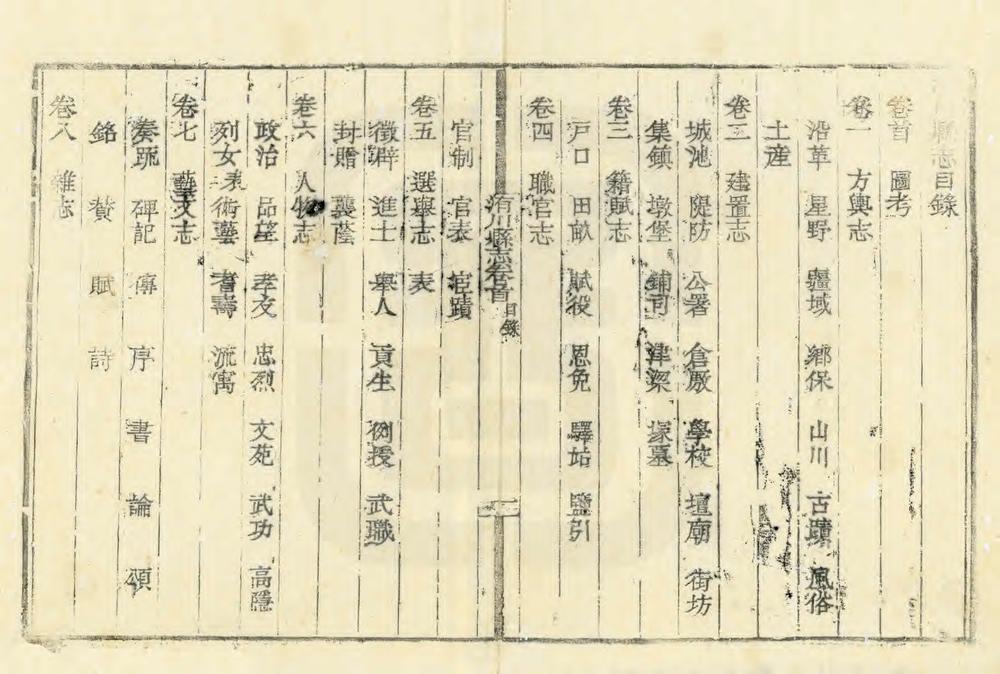 縣志目錄
卷首 圖考
卷一 方輿志
沿革 星野 疆域 鄉保 山川 古蹟 風俗
土產
卷二 建置志
城池 隄防 公署 倉厫 學校 壇廟 街坊
集鎮 墩堡 鋪司 津梁 塚墓
卷三 籍賦志
戸口 田畝 賦役 恩免 驛站 鹽引
卷四 職官志
洧川縣志卷首 目錄 一
官制 官表 宦蹟
卷五 選舉志 表
徵辟 進士 舉人 貢生 例授 武職
封贈 襲蔭
卷六 人物志
政治 品望 孝友 忠烈 文苑 武功 高隱
列女表 術藝 耆壽 流寓
卷七 藝文志
奏疏 碑記 傳 序 書 論 頌
銘 贊 賦 詩
卷八 雜志